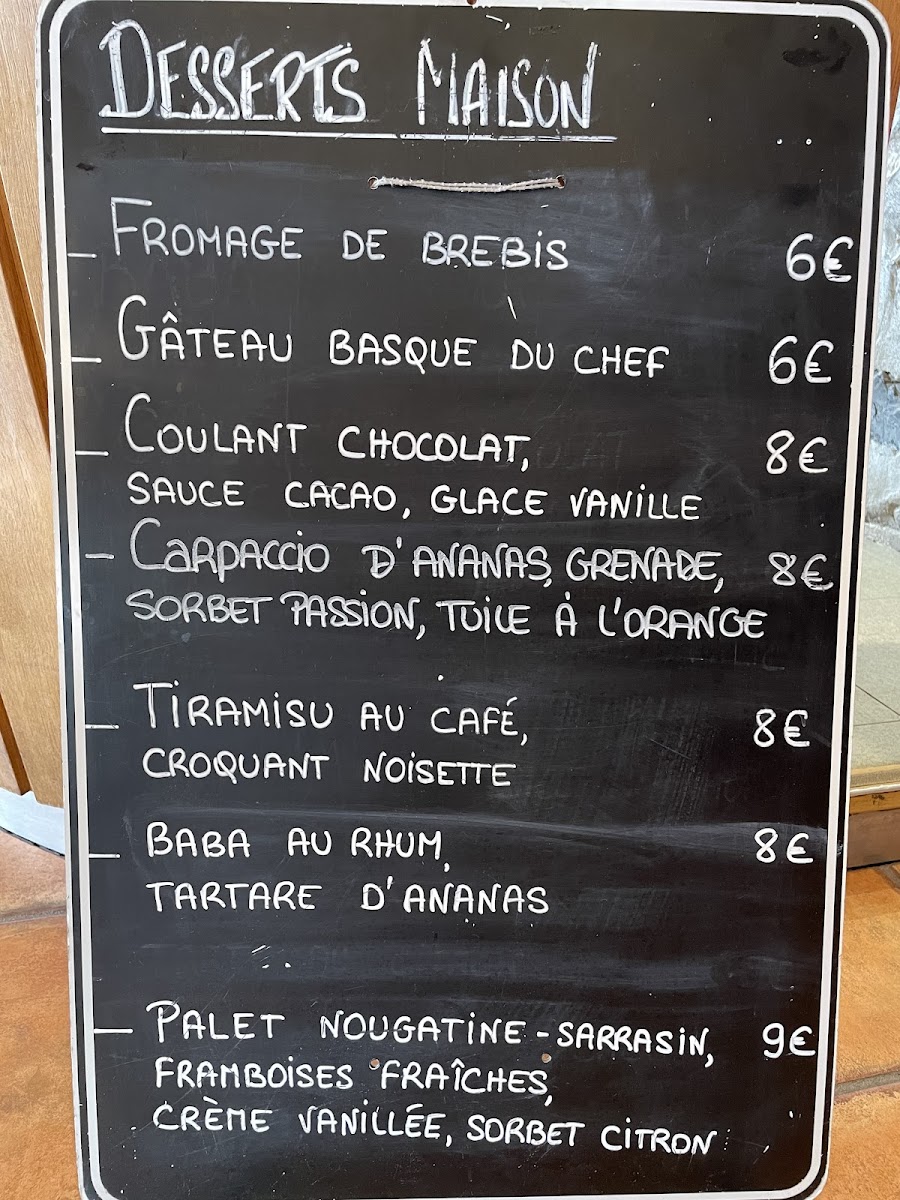 DESSERTS MAISON
- FROMAGE DE BREBIS 6€
- GÂTEAU BASQUE DU CHEF 6€
- COULANT CHOCOLAT, 8€
SAUCE CACAO, GLACE VANILLE
- CARPACCIO D'ANANAS, GRENADE, 8€
SORBET PASSION, TUILE À L'ORANGE
- TIRAMISU AU CAFÉ, 8€
CROQUANT NOISETTE
- BABA AU RHUM, 8€
TARTARE D'ANANAS
- PALET NOUGATINE-SARRASIN, 9€
FRAMBOISES FRAÎCHES,
CRÈME VANILLÉE, SORBET CITRON